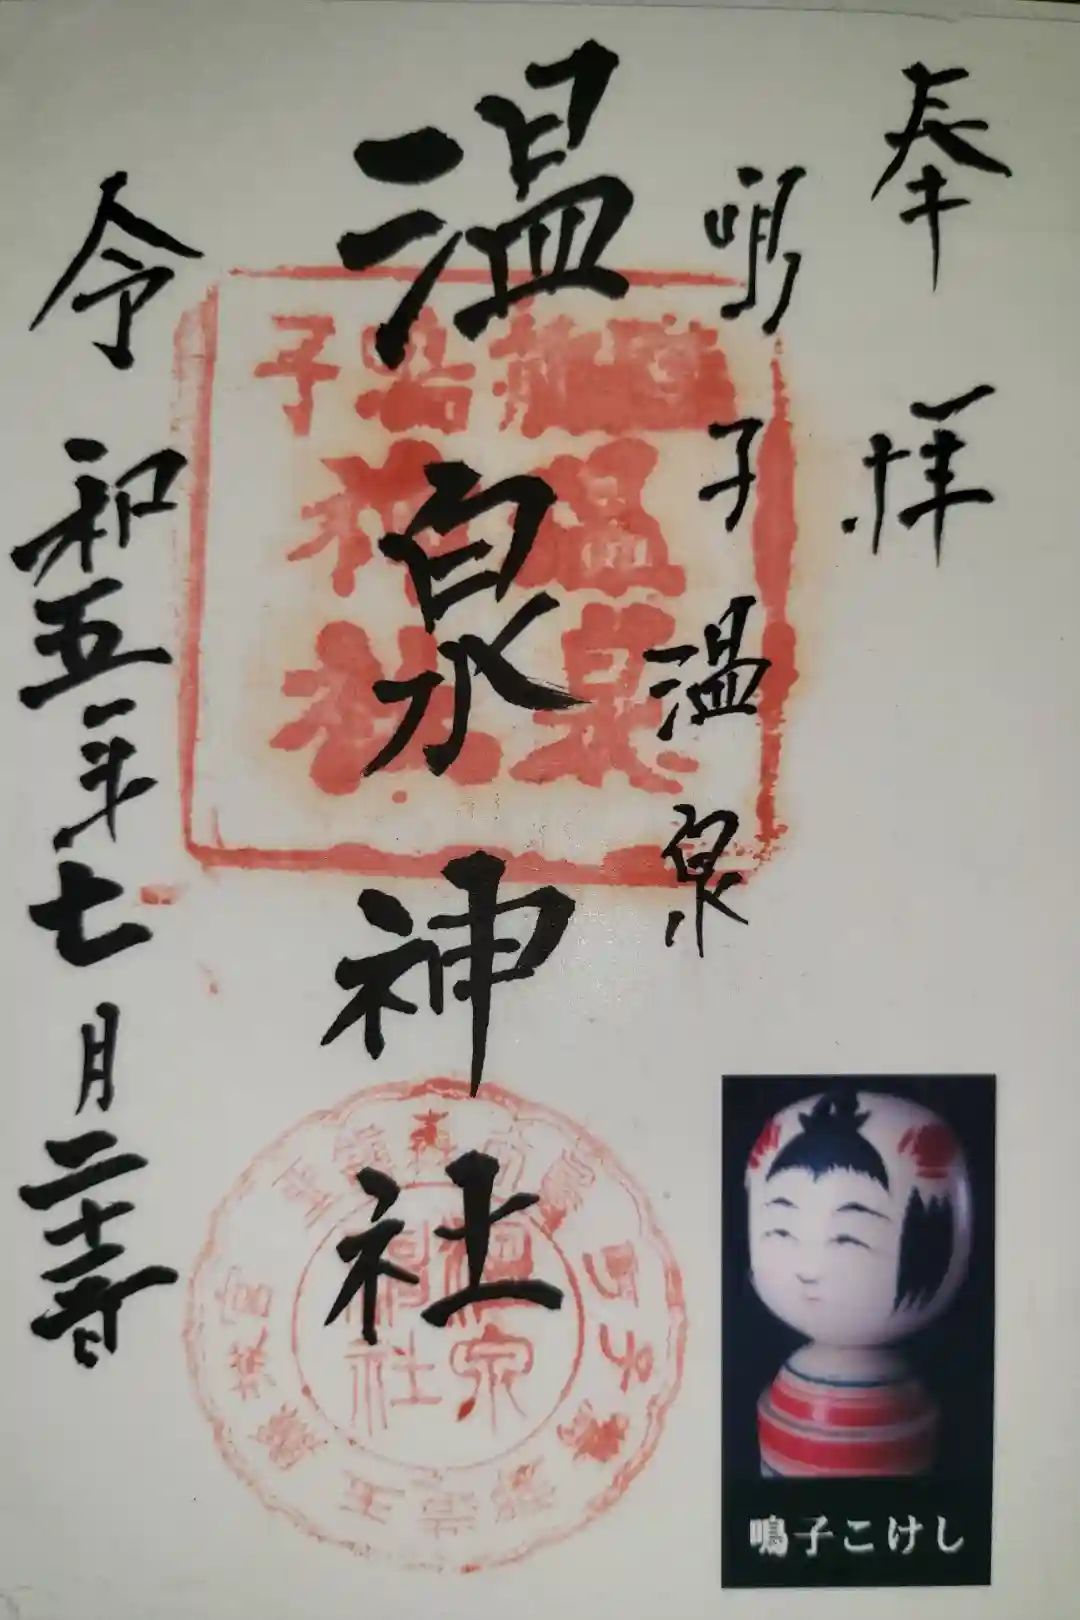 奉拝
鳴子温泉
温泉神社
令和五年七月二十二日
温泉
神社
温泉
神社
鳴子こけし